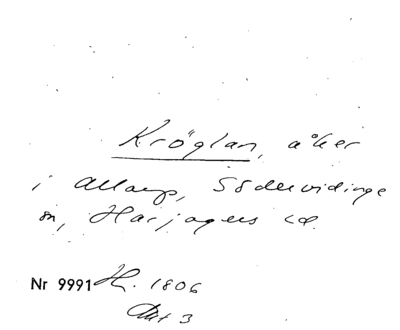 Kröglan, åker
i Allarp, Södervidinge
sn, Harjagers hd.
Nr 9991 H. 1806
Akt 3